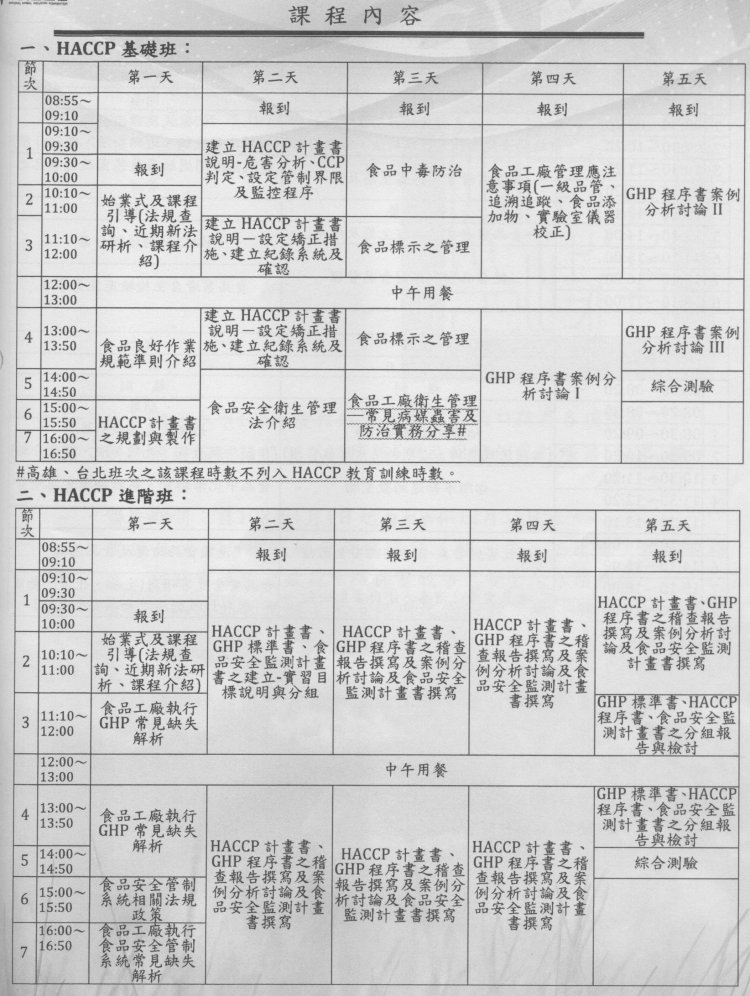 課程內容
一、HACCP 基礎班：
節次
第一天
第二天
第三天
第四天
第五天
08:55～
09:10
報到
報到
報到
報到
1
09:10～
09:30
09:30～
10:00
報到
建立 HACCP 計畫書
說明-危害分析、CCP
判定、設定管制界限
及監控程序
食品中毒防治
食品工廠管理應注
意事項(一級品管、
追溯追蹤、食品添
加物、實驗室儀器
校正)
GHP 程序書案例
分析討論 II
2
10:10～
11:00
始業式及課程
引導(法規查
詢、近期新法
研析、課程介
紹)
3
11:10～
12:00
建立 HACCP 計畫書
說明－設定矯正措
施、建立紀錄系統及
確認
食品標示之管理
12:00～
13:00
中午用餐
4
13:00～
13:50
食品良好作業
規範準則介紹
建立 HACCP 計畫書
說明－設定矯正措
施、建立紀錄系統及
確認
食品標示之管理
GHP 程序書案例分
析討論 I
GHP 程序書案例
分析討論 III
5
14:00～
14:50
食品安全衛生管理
法介紹
食品工廠衛生管理
—常見病媒蟲害及
防治實務分享#
綜合測驗
6
15:00～
15:50
HACCP計畫書
之規劃與製作
7
16:00～
16:50
#高雄、台北班次之該課程時數不列入 HACCP 教育訓練時數。
二、HACCP 進階班：
節次
第一天
第二天
第三天
第四天
第五天
08:55～
09:10
報到
報到
報到
報到
1
09:10～
09:30
09:30～
10:00
報到
HACCP 計畫書、
GHP 標準書、食
品安全監測計畫
書之建立-實習目
標說明與分組
HACCP 計畫書、
GHP 程序書之稽查
報告撰寫及案例分
析討論及食品安全
監測計畫書撰寫
HACCP 計畫書、
GHP 程序書之稽
查報告撰寫及案
例分析討論及食
品安全監測計畫
書撰寫
HACCP 計畫書、GHP
程序書之稽查報告
撰寫及案例分析討
論及食品安全監測
計畫書撰寫
2
10:10～
11:00
始業式及課程
引導(法規查
詢、近期新法研
析、課程介紹)
3
11:10～
12:00
食品工廠執行
GHP 常見缺失
解析
GHP 標準書、HACCP
程序書、食品安全監
測計畫書之分組報
告與檢討
12:00～
13:00
中午用餐
4
13:00～
13:50
食品工廠執行
GHP 常見缺失
解析
HACCP 計畫書、
GHP 程序書之稽
查報告撰寫及案
例分析討論及食
品安全監測計畫
書撰寫
HACCP 計畫書、
GHP 程序書之稽查
報告撰寫及案例分
析討論及食品安全
監測計畫書撰寫
HACCP 計畫書、
GHP 程序書之稽
查報告撰寫及案
例分析討論及食
品安全監測計畫
書撰寫
GHP 標準書、HACCP
程序書、食品安全監
測計畫書之分組報
告與檢討
5
14:00～
14:50
綜合測驗
6
15:00～
15:50
食品安全管制
系統相關法規
政策
7
16:00～
16:50
食品工廠執行
食品安全管制
系統常見缺失
解析